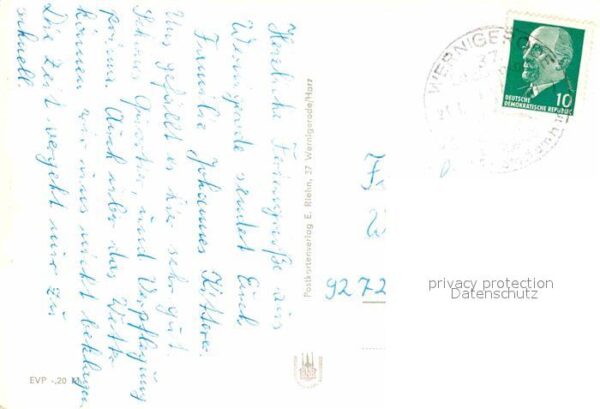 Herzliche Feriengrüße aus
Wernigerode sendet Euch
Familie Johannes
Uns gefällt es hier sehr gut.
Quartier und Verpflegung
prima. Auch über das Wetter
können wir uns nicht beklagen
Die Zeit vergeht nur zu
schnell
Postkartenverlag E. Riehn, 37 Wernigerode/Harz
EVP -,20 M
WERNIGERODE
37
DEUTSCHE
DEMOKRATISCHE REPUBLIK
10
9272
privacy protection
Datenschutz